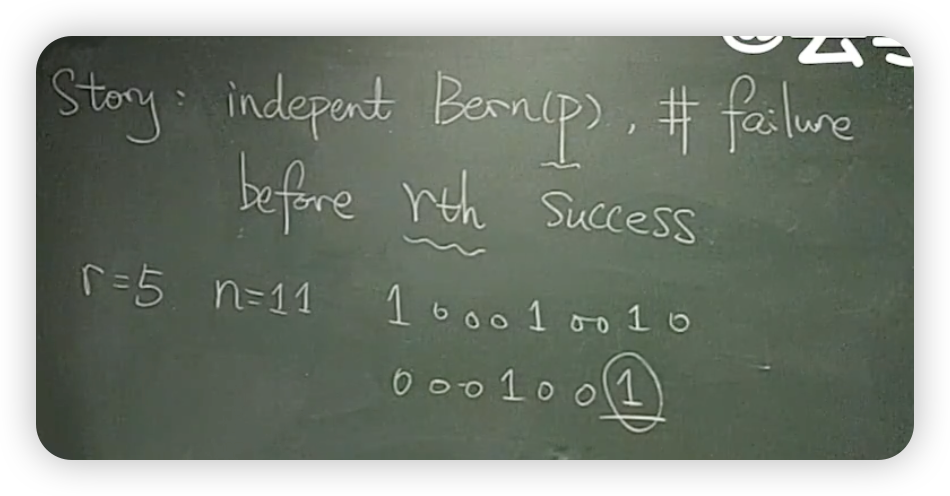 Story: indepent Bern(p), # failure
before rth success
r=5 n=11 1 0 0 0 1 0 0 1 0
0 0 0 1 0 0 1